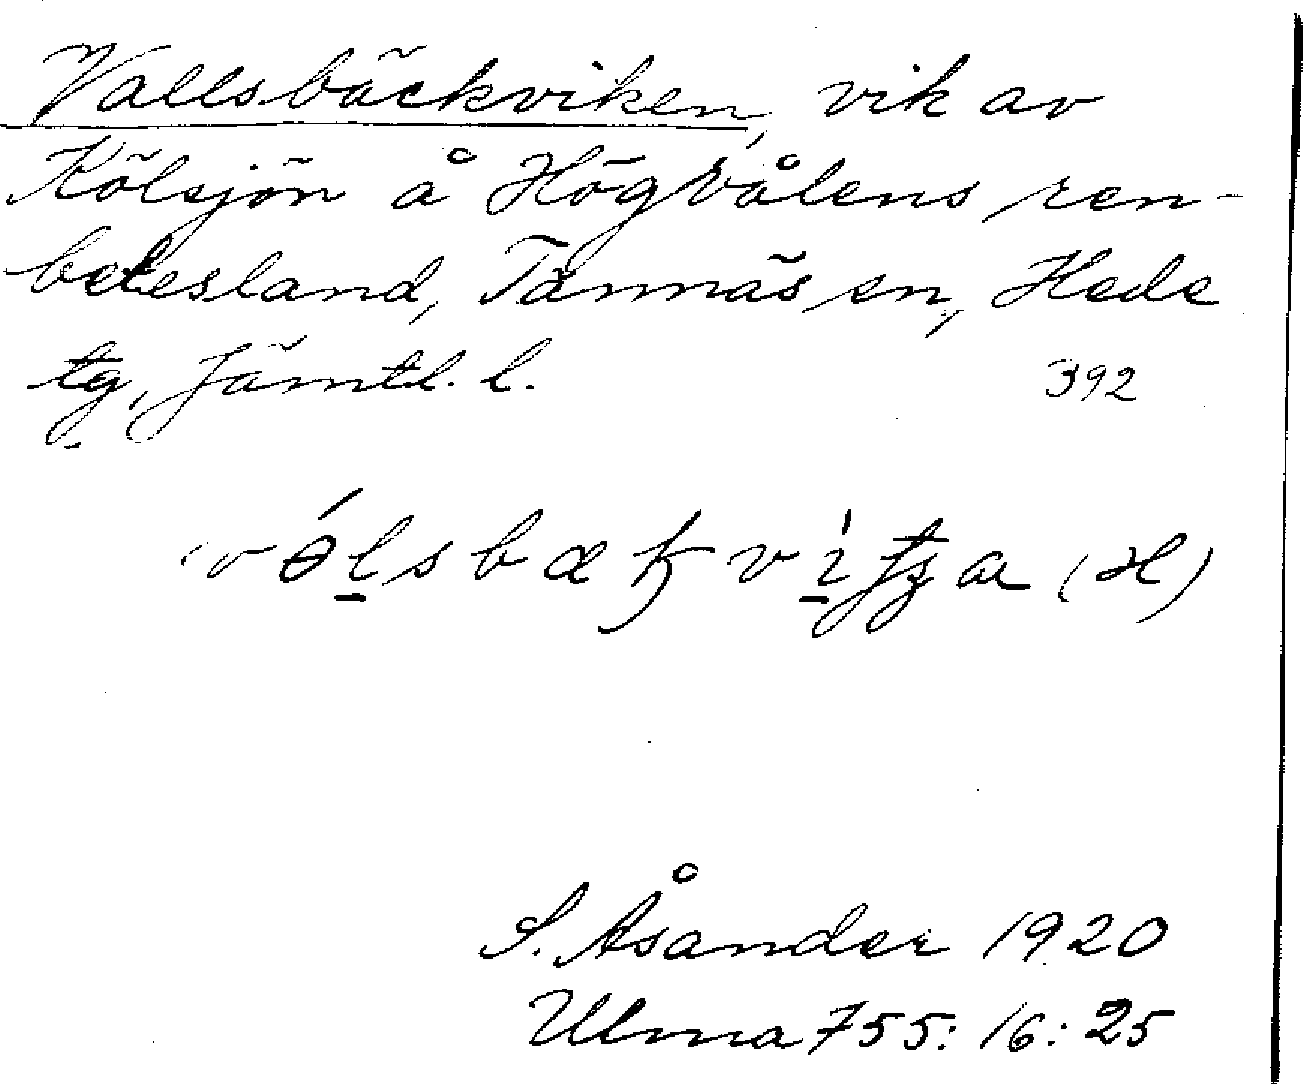 Vallsbäckviken, vik av
Kölsjön å Högvålens ren-
betesland, Tännäs sn, Hede
tg, Jämtl. l. 392
(H)
S. Åsander 1920
Ulma 755: 16: 25